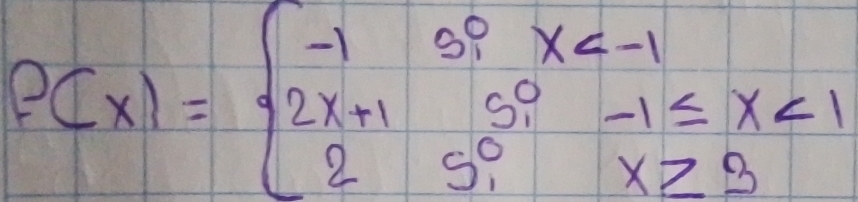 f(x) = { -1 si x < -1
2x+1 si -1 ≤ x < 1
2 si x ≥ 3